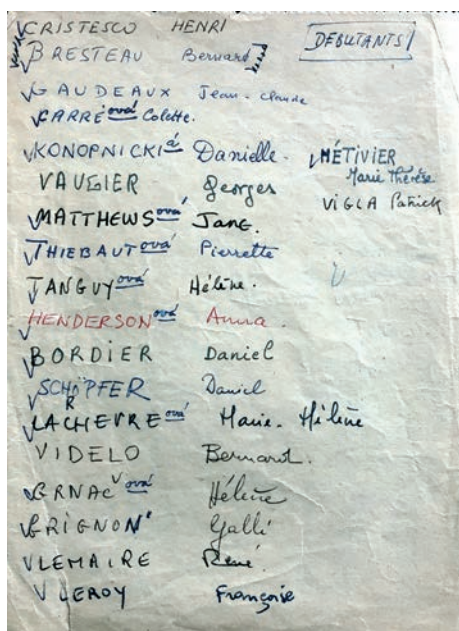 CRISTESCO HENRI
BRESTEAU Bernard
DEBUTANTS!
GAUDEAUX Jean-Claude
CARRÉová Colette.
KONOPNICKIá Danielle.
VAUGIER Georges
MATTHEWSová Jane.
THIEBAUTová Pierrette
TANGUYová Hélène.
HENDERSONová Anna.
BORDIER Daniel
SCHÖPFER Daniel
LACHEVREová Marie-Hélène
VIDELO Bernard.
GRNACová Hélène
GRIGNON Galli
LEMAIRE René.
LEROY Françoise
MÉTIVIER
Marie Thérèse
VIGLA Patrick